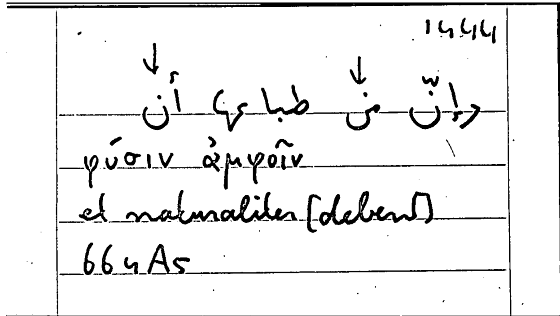 1444
وإنّ من طباعها أن
φύσιν ἀμφοῖν
et naturaliter [debent]
664A5